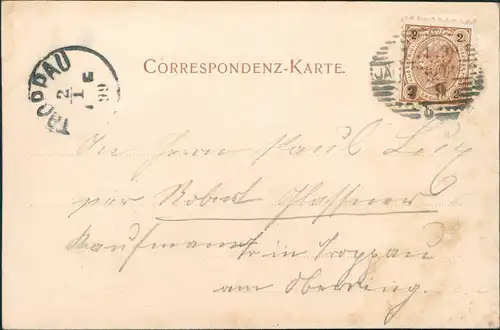 CORRESPONDENZ-KARTE.
TROPPAU
2
1
99
2 2
2 2
JÄ
An Herrn Paul
per Robert Glassner
Kaufmann
in Troppau
am Oberring.